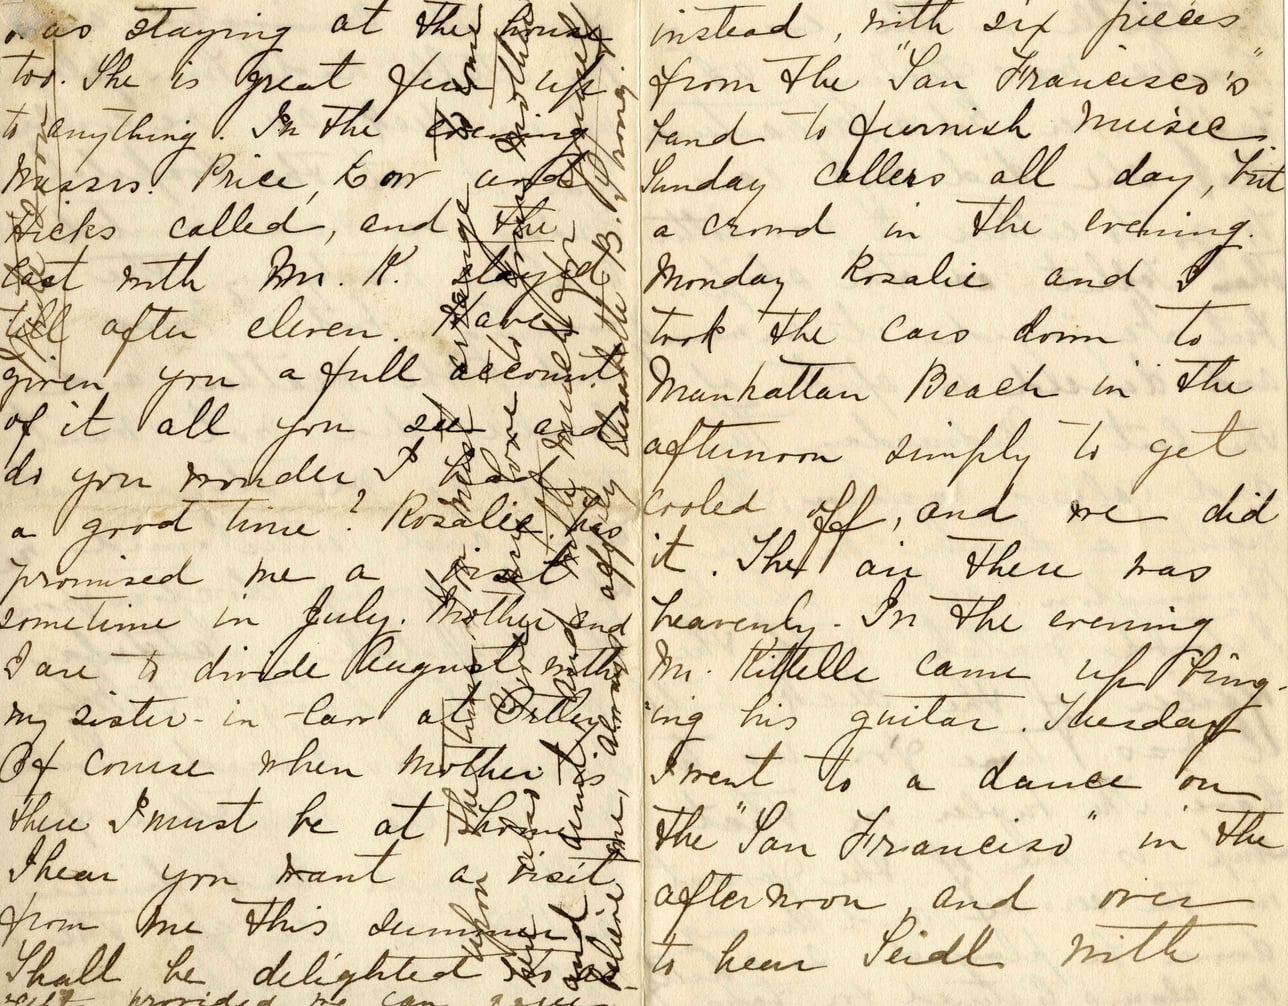 was staying at the house
too. She is great fun up
to anything. In the evening
Messrs. Price, and
Hicks called, and the
last with Mr. K. stayed
till after eleven. Have
given you a full account
of it all you see and
do you wonder I had
a good time? Rosalie has
promised me a visit
sometime in July. Mother and
I are to divide August with
my sister-in-law at
Of course when Mother is
there I must be at home
I hear you want a visit
from me this summer
Shall be delighted to
provided we can
upon the time. must arrange some
visit. Give my love to your mother
and aunt and much for yourself
Believe me, always affly Elizabeth B. Strong.
instead, with six pieces
from the "San Francisco's"
band to furnish music.
Sunday callers all day, but
a crowd in the evening.
Monday Rosalie and I
took the cars down to
Manhattan Beach in the
afternoon simply to get
cooled off, and we did
it. The air there was
heavenly. In the evening
Mr. Kittelle came up bring-
ing his guitar. Tuesday
I went to a dance on
the "San Francisco" in the
afternoon and over
to hear Seidl with